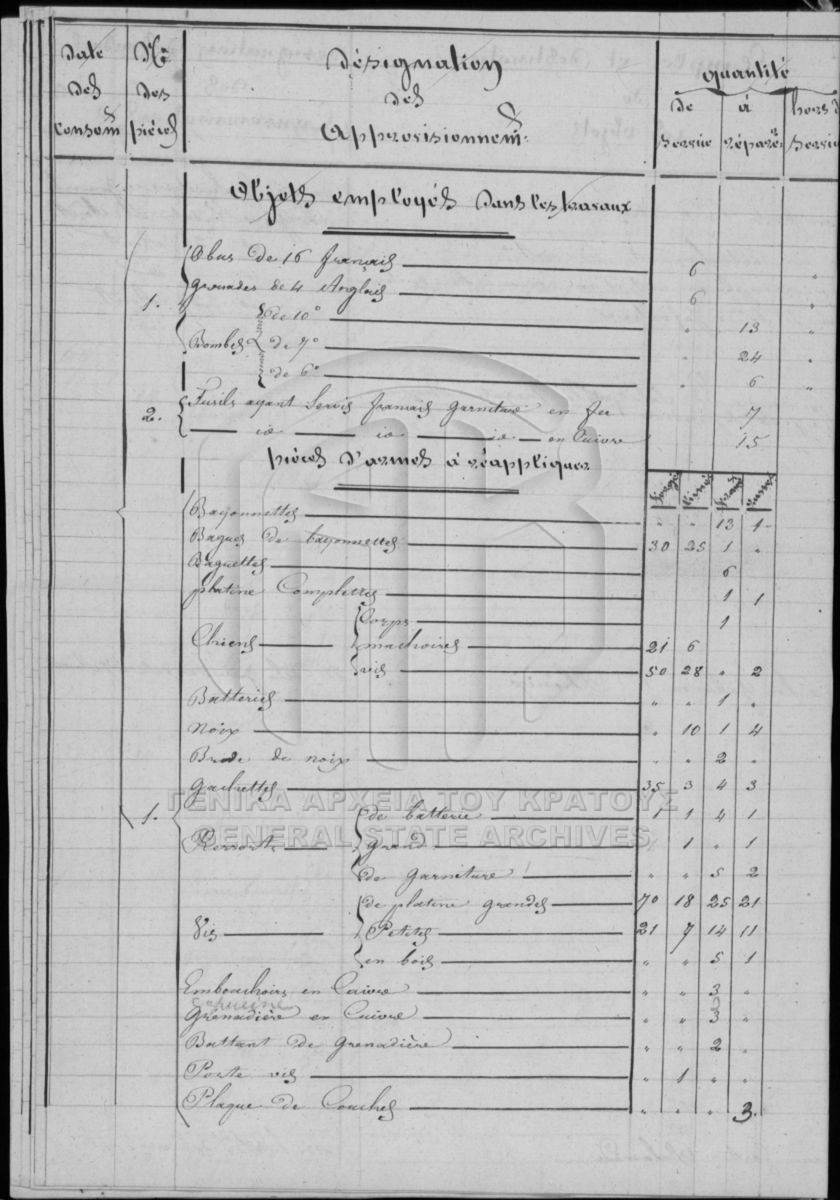 Date des Consom̃
Nos des pièces
Désignation des Approvisionnem̃:
quantité
de Service
à réparer
hors de Servi
Objets employés dans les travaux
1.
Obus de 16 français 6 "
Grenades de 4 Anglais 6 "
Bombes de 10° " 13 "
de 7° " 24 "
de 6° " 6 "
2.
Fusils ayant Servis français garniture en fer 7
id id id en Cuivre 15
pièces d'armes à réappliquer
forgés limés
Bayonnettes " " 13 1
Bagues de bayonnettes 30 25 1 "
Baguettes 6
platine Complettes 1 1
Chiens Corps 1
machoires 21 6
vis 50 28 " 2
Batteries " " 1 "
Noix " 10 1 4
Bride de noix " " 2 "
Gachettes 35 3 4 3
1.
Ressorts de batterie 1 1 4 1
Grand " 1 " 1
de garniture " " 5 2
Vis de platine grandes 70 18 25 21
Petites 21 7 14 11
en bois " " 5 1
Embouchoirs en Cuivre " " 3 "
Capucine
Grenadière en Cuivre " " 3 "
Battant de Grenadière " " 2 "
Porte vis " 1 " "
Plaque de Couches " " " 3.
ΓΕΝΙΚΑ ΑΡΧΕΙΑ ΤΟΥ ΚΡΑΤΟΥΣ
GENERAL STATE ARCHIVES